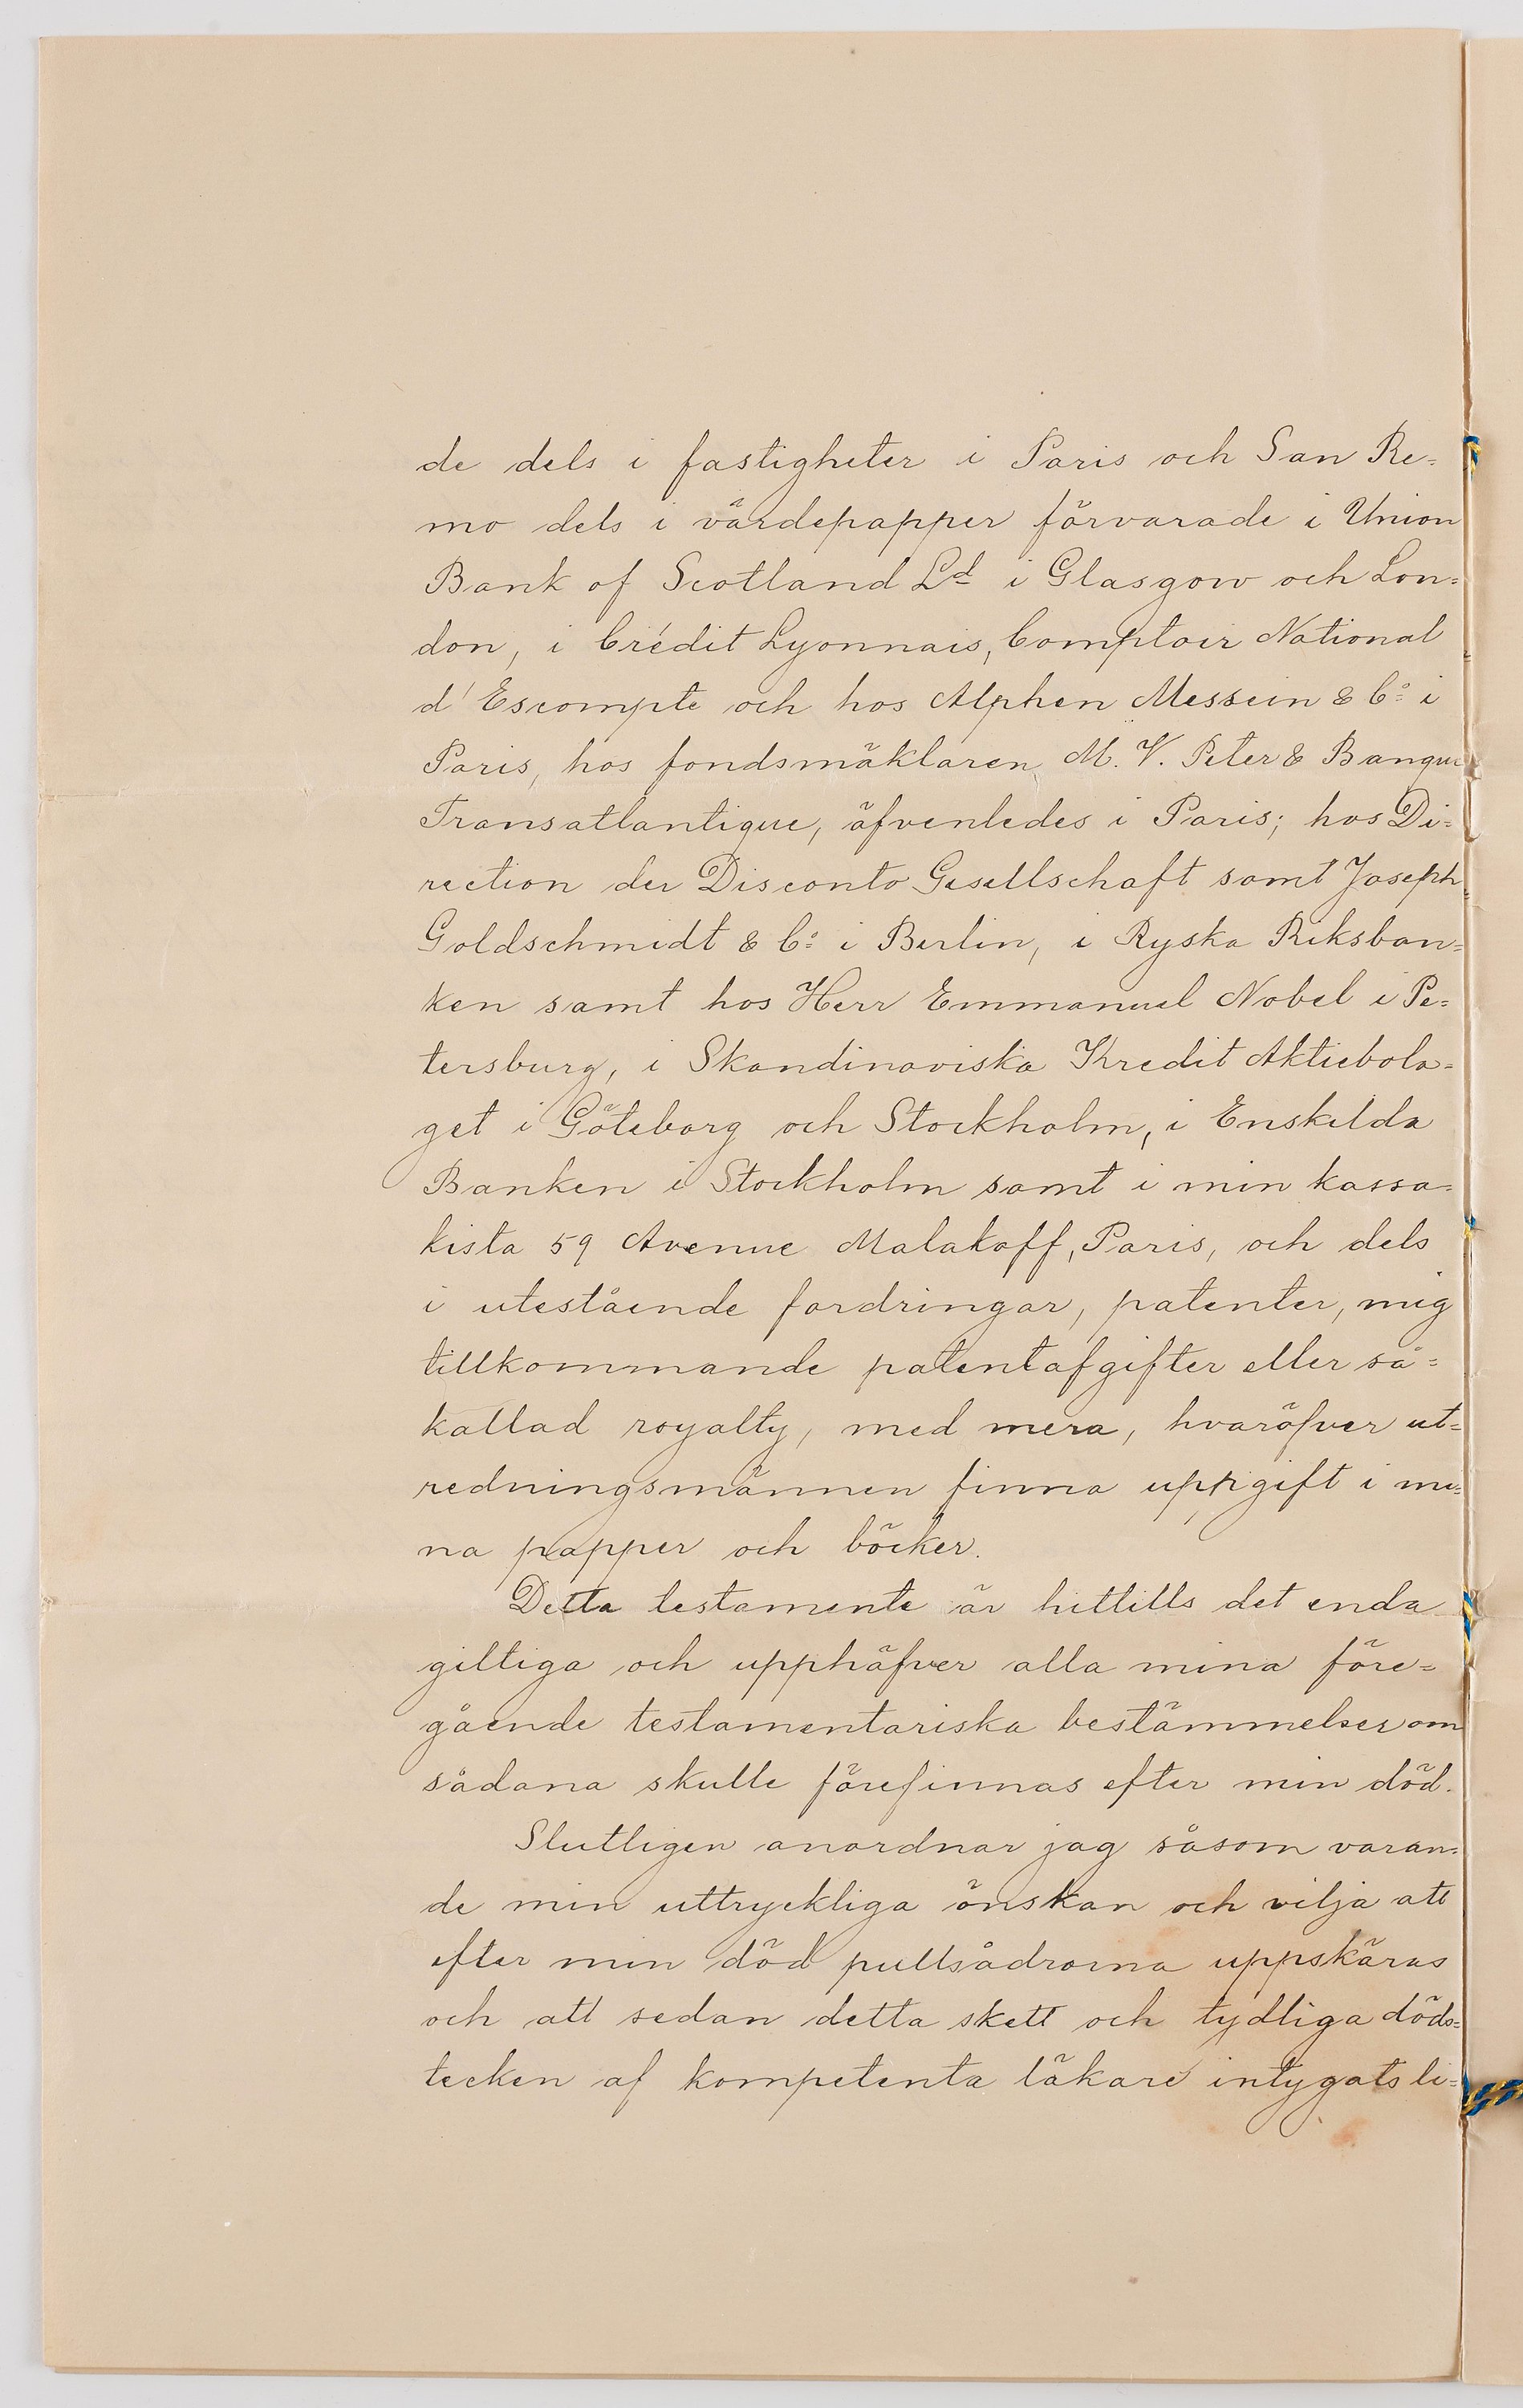 de dels i fastigheter i Paris och San Re=
mo dels i värdepapper förvarade i Union
Bank of Scotland Ld i Glasgow och Lon=
don, i Crédit Lyonnais, Comptoir National
d'Escompte och hos Alphen Messin & Co i
Paris, hos fondsmäklaren M. V. Peter & Banque
Transatlantique, äfvenledes i Paris; hos Di=
rection der Disconto Gesellschaft samt Joseph
Goldschmidt & Co i Berlin, i Ryska Riksban=
ken samt hos Herr Emmanuel Nobel i Pe=
tersburg, i Skandinaviska Kredit Aktiebola=
get i Göteborg och Stockholm, i Enskilda
Banken i Stockholm samt i min kassa=
kista 59 Avenue Malakoff, Paris, och dels
i utestående fordringar, patenter, mig
tillkommande patentafgifter eller så=
kallad royalty, med mera, hvaröfver ut=
redningsmännen finna uppgift i mi=
na papper och böcker.
Detta testamente är hittills det enda
giltiga och upphäfver alla mina före=
gående testamentariska bestämmelser om
sådana skulle förefinnas efter min död.
Slutligen anordnar jag såsom varan=
de min uttryckliga önskan och vilja att
efter min död pulsådrorna uppskäras
och att sedan detta skett och tydliga döds=
tecken af kompetenta läkare intygats li=